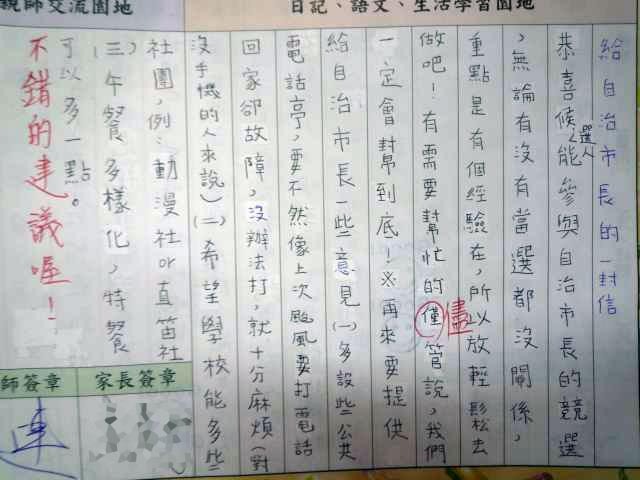 親師交流園地
日記、語文、生活學習園地
給自治市長的一封信
恭喜候選人能參與自治市長的競選
，無論有沒有當選都沒關係，
重點是有個經驗在，所以放輕鬆去
做吧！有需要幫忙的僅管說，我們
儘
一定會封幫到底！※再來要提供
給自治市長一些意見(一)多設些公共
電話亭，要不然像上次颱風要打電話
回家卻故障，沒辦法打，就十分麻煩(對
沒手機的人來說)(二)希望學校能多些
社團，例：動漫社or直笛社
(三)午餐多樣化，特餐
可以多一點。
不錯的建議喔！
師簽章
家長簽章
連